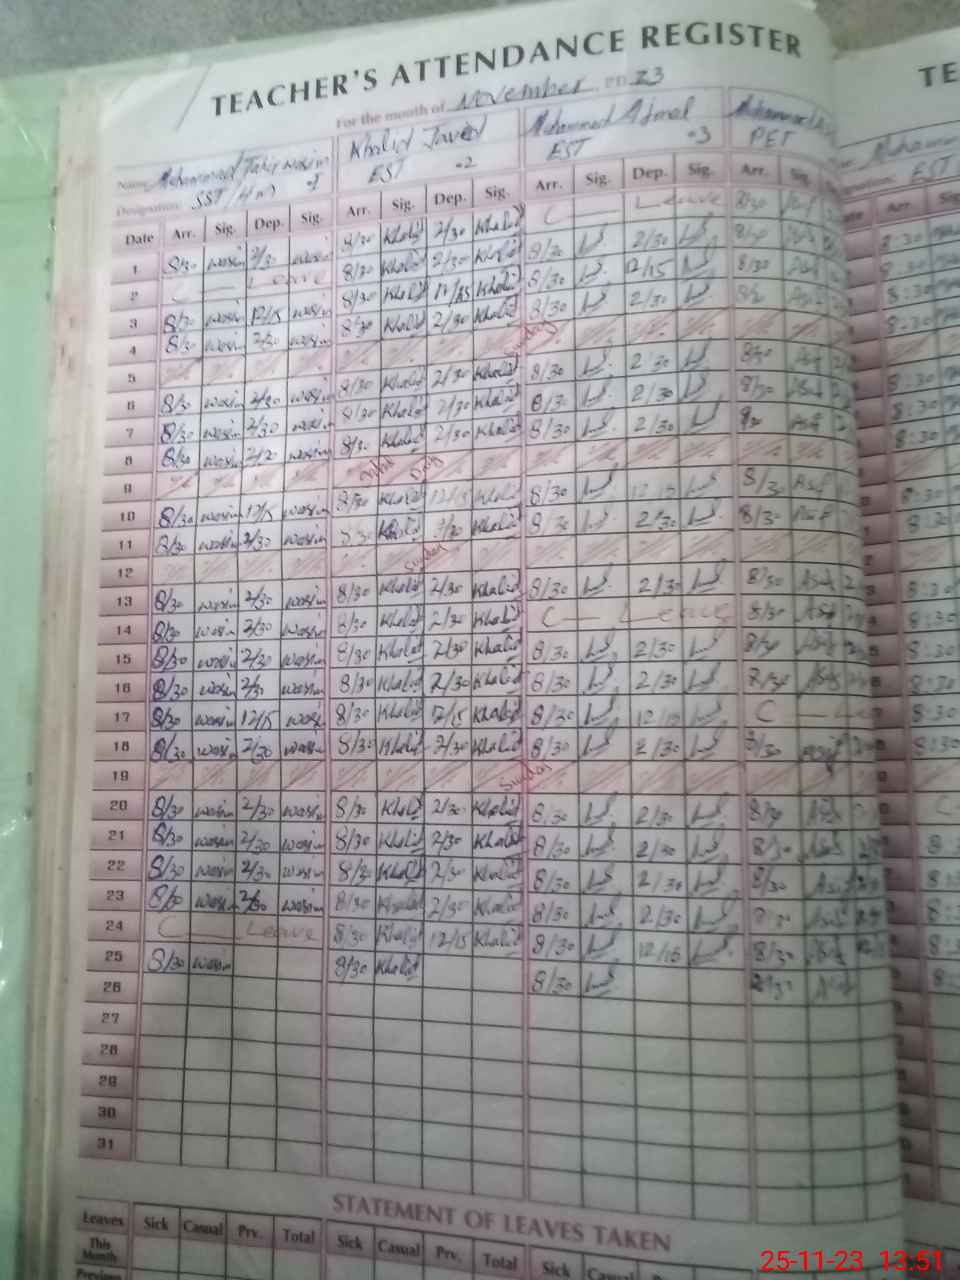 TEACHER'S ATTENDANCE REGISTER
TE
For the month of November 23
Name Mohammad Tahir wasim Khalid Javed Mohammad Ajmal Mohammad
Designation SST / H m 1 EST 2 EST 3 PET EST
Date Arr. Sig. Dep. Sig. Arr. Sig. Dep. Sig. Arr. Sig. Dep. Sig. Arr. Sig. Arr.
1 8/30 wasim 2/30 wasim 8/30 Khalid 2/30 Khalid C — Leave 8/30 8:30
2 C — Leave 8/30 Khalid 2/30 Khalid 8/30 2/30 8:30
3 8/30 wasim 12/15 wasim 8/30 Khalid 12/15 Khalid 8/30 12/15 8/30 8:30
4 8/30 wasim 2/30 wasim 8/30 Khalid 2/30 Khalid 8/30 2/30 8:30
5 Sunday
6 8/30 wasim 2/30 wasim 8/30 Khalid 2/30 Khalid 8/30 2/30 8/30 Asif 8:30
7 8/30 wasim 2/30 wasim 8/30 Khalid 2/30 Khalid 8/30 2/30 8/30 Asif 8:30
8 8/30 wasim 2/30 wasim 8/30 Khalid 2/30 Khalid 8/30 2/30 Asif 8:30
9 Iqbal Day
10 8/30 wasim 12/15 wasim 8/30 Khalid 12/15 Khalid 8/30 12/15 8/30 Asif 8:30
11 8/30 wasim 2/30 wasim 8/30 Khalid 2/30 Khalid 8/30 2/30 8/30 Asif 8:30
12 Sunday
13 8/30 wasim 2/30 wasim 8/30 Khalid 2/30 Khalid 8/30 2/30 8/30 Asif 8:30
14 8/30 wasim 2/30 wasim 8/30 Khalid 2/30 Khalid C — Leave 8/30 Asif 8:30
15 8/30 wasim 2/30 wasim 8/30 Khalid 2/30 Khalid 8/30 2/30 Asif 8:30
16 8/30 wasim 2/30 wasim 8/30 Khalid 2/30 Khalid 8/30 2/30 8/30 Asif 8:30
17 8/30 wasim 12/15 wasim 8/30 Khalid 12/15 Khalid 8/30 12/15 C — 8:30
18 8/30 wasim 2/30 wasim 8/30 Khalid 2/30 Khalid 8/30 2/30 8/30 Asif 8:30
19 Sunday
20 8/30 wasim 2/30 wasim 8/30 Khalid 2/30 Khalid 8/30 2/30 Asif
21 8/30 wasim 2/30 wasim 8/30 Khalid 2/30 Khalid 8/30 2/30 8/30 Asif
22 8/30 wasim 2/30 wasim 8/30 Khalid 2/30 Khalid 8/30 2/30 8/30 Asif
23 8/30 wasim 2/30 wasim 8/30 Khalid 2/30 Khalid 8/30 2/30 Asif
24 C — Leave 8/30 Khalid 12/15 Khalid 8/30 12/15 8/30 Asif
25 8/30 wasim 8/30 Khalid 8/30 Asif
26
27
28
29
30
31
STATEMENT OF LEAVES TAKEN
Leaves Sick Casual Prv. Total Sick Casual Prv. Total Sick Casual
This Month
Previous
25-11-23 13:51